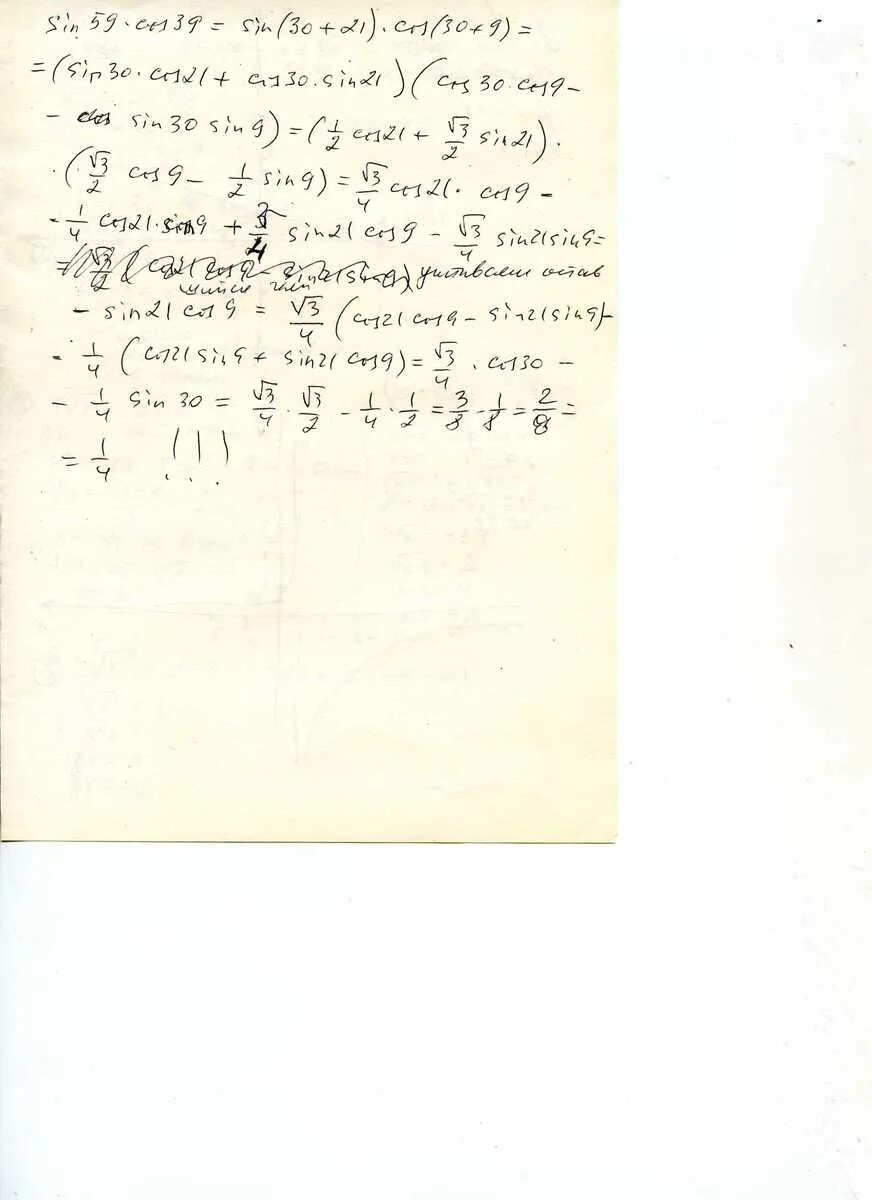 sin 59 · cos 39 = sin(30 + 21) · cos(30 + 9) =
= (sin 30 · cos 21 + cos 30 · sin 21) (cos 30 · cos 9 -
- sin 30 sin 9) = (1/2 cos 21 + √3/2 sin 21) ·
· (√3/2 cos 9 - 1/2 sin 9) = √3/4 cos 21 · cos 9 -
- 1/4 cos 21 · sin 9 + 3/4 sin 21 cos 9 - √3/4 sin 21 sin 9 =
= √3/2 ( cos 21 cos 9 - sin 21 sin 9) учитываем остав
шийся член
- sin 21 cos 9 = √3/4 (cos 21 cos 9 - sin 21 sin 9) -
- 1/4 (cos 21 sin 9 + sin 21 cos 9) = √3/4 · cos 30 -
- 1/4 sin 30 = √3/4 · √3/2 - 1/4 · 1/2 = 3/8 - 1/8 = 2/8 =
= 1/4 !!!